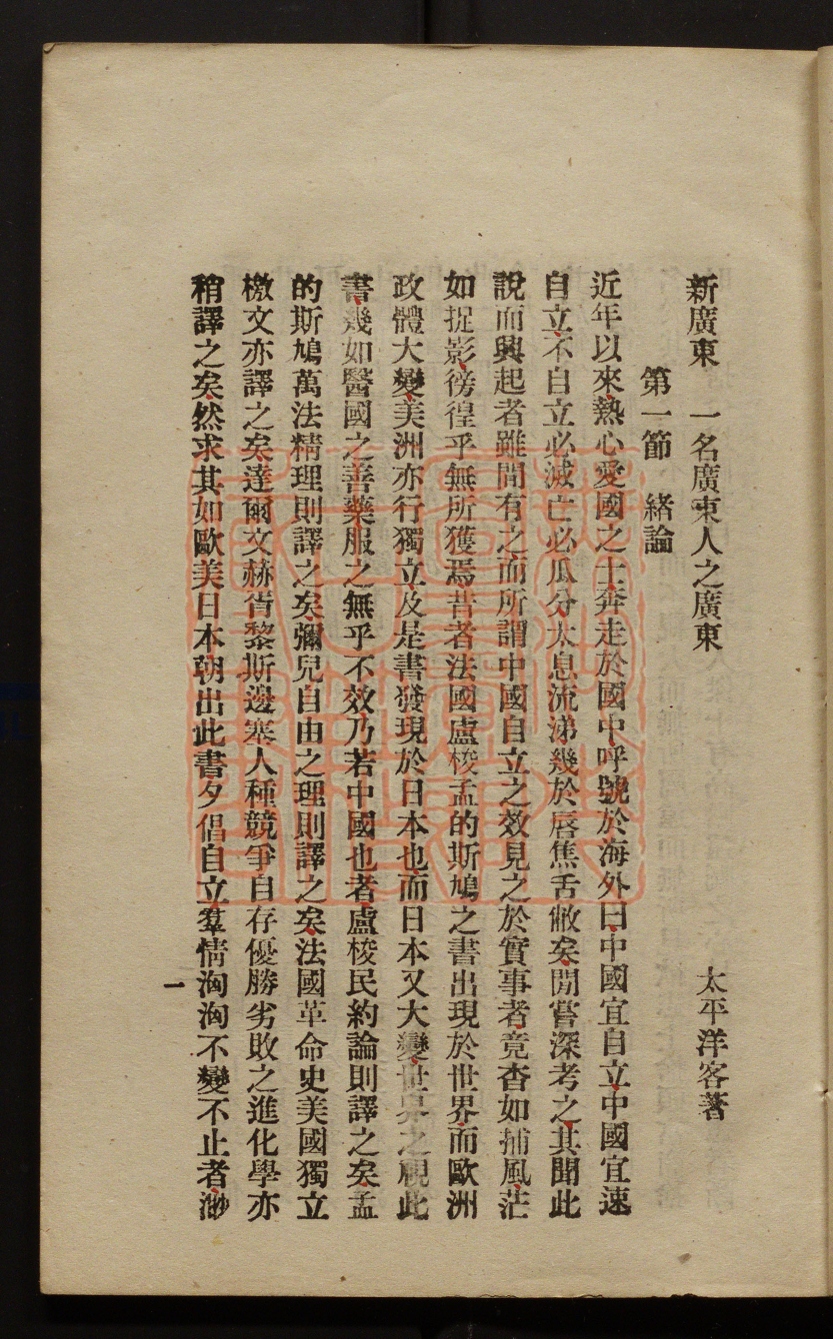 新廣東　一名廣東人之廣東　太平洋客著
第一節　緒論
近年以來熱心愛國之士奔走於國中呼號於海外曰中國宜自立中國宜速
自立不自立必滅亡必瓜分太息流涕幾於唇焦舌敝矣閒嘗深考之其聞此
說而興起者雖間有之而所謂中國自立之效見之於實事者竟杳如捕風茫
如捉影徬徨乎無所獲焉昔者法國盧梭孟的斯鳩之書出現於世界而歐洲
政體大變美洲亦行獨立及是書發現於日本也而日本又大變世界之視此
書幾如醫國之善藥服之無乎不效乃若中國也者盧梭民約論則譯之矣孟
的斯鳩萬法精理則譯之矣彌兒自由之理則譯之矣法國革命史美國獨立
檄文亦譯之矣達爾文赫胥黎斯邊塞人種競爭自存優勝劣敗之進化學亦
稍譯之矣然求其如歐美日本朝出此書夕倡自立羣情洶洶不變不止者渺
一